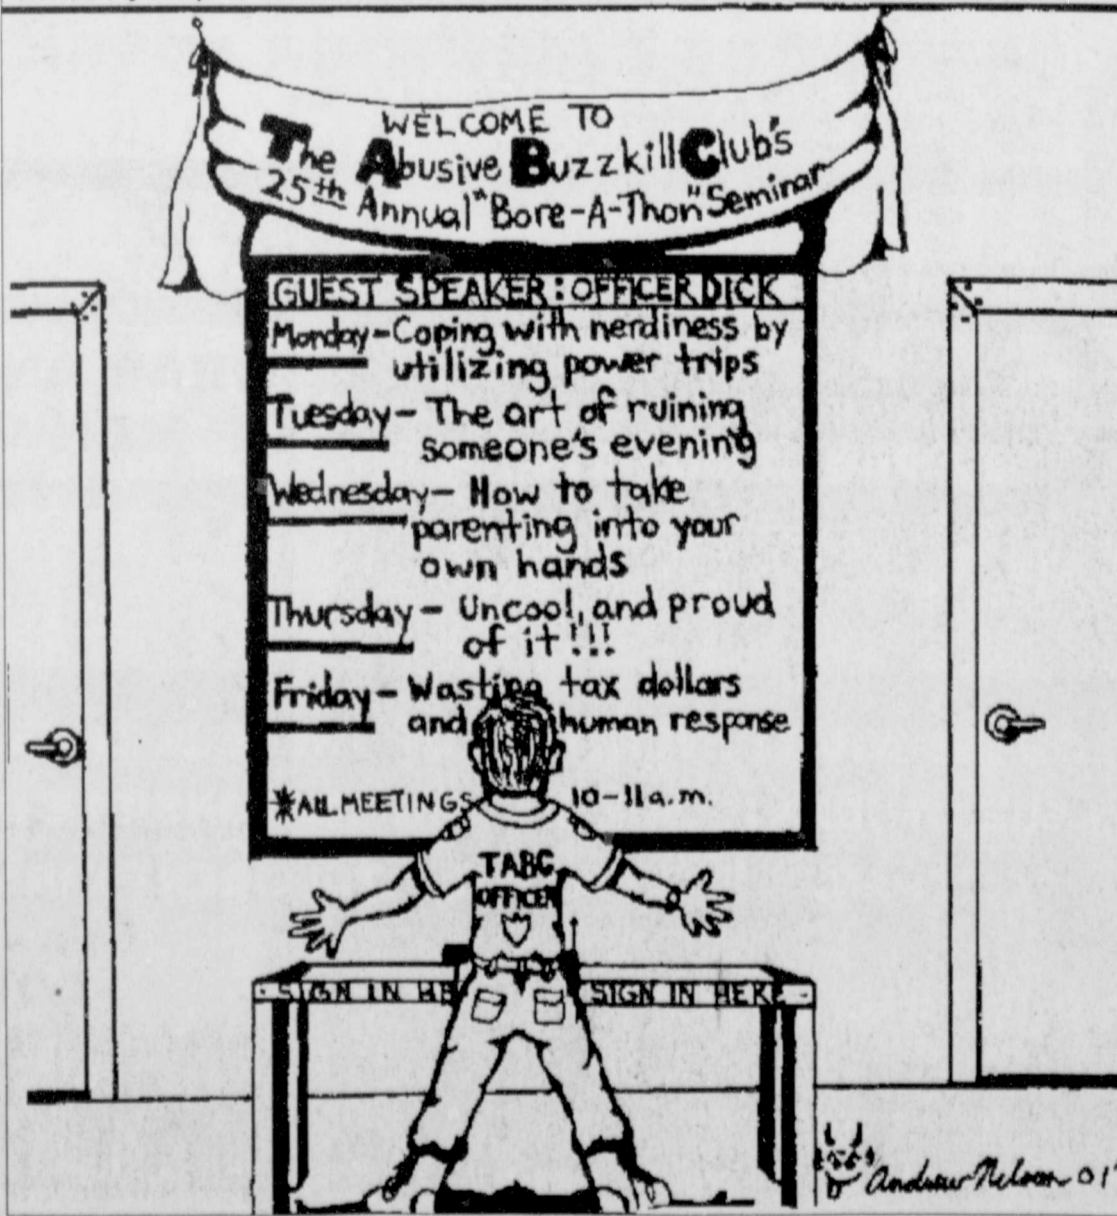 WELCOME TO
The Abusive Buzzkill Club's
25th Annual "Bore-A-Thon" Seminar
GUEST SPEAKER: OFFICER DICK
Monday - Coping with nerdiness by
utilizing power trips
Tuesday - The art of ruining
someone's evening
Wednesday - How to take
parenting into your
own hands
Thursday - Uncool, and proud
of it!!!
Friday - Wasting tax dollars
and human response
*ALL MEETINGS 10-11 a.m.
TABC
OFFICER
SIGN IN HE SIGN IN HERE
Andrew Nelson 01'